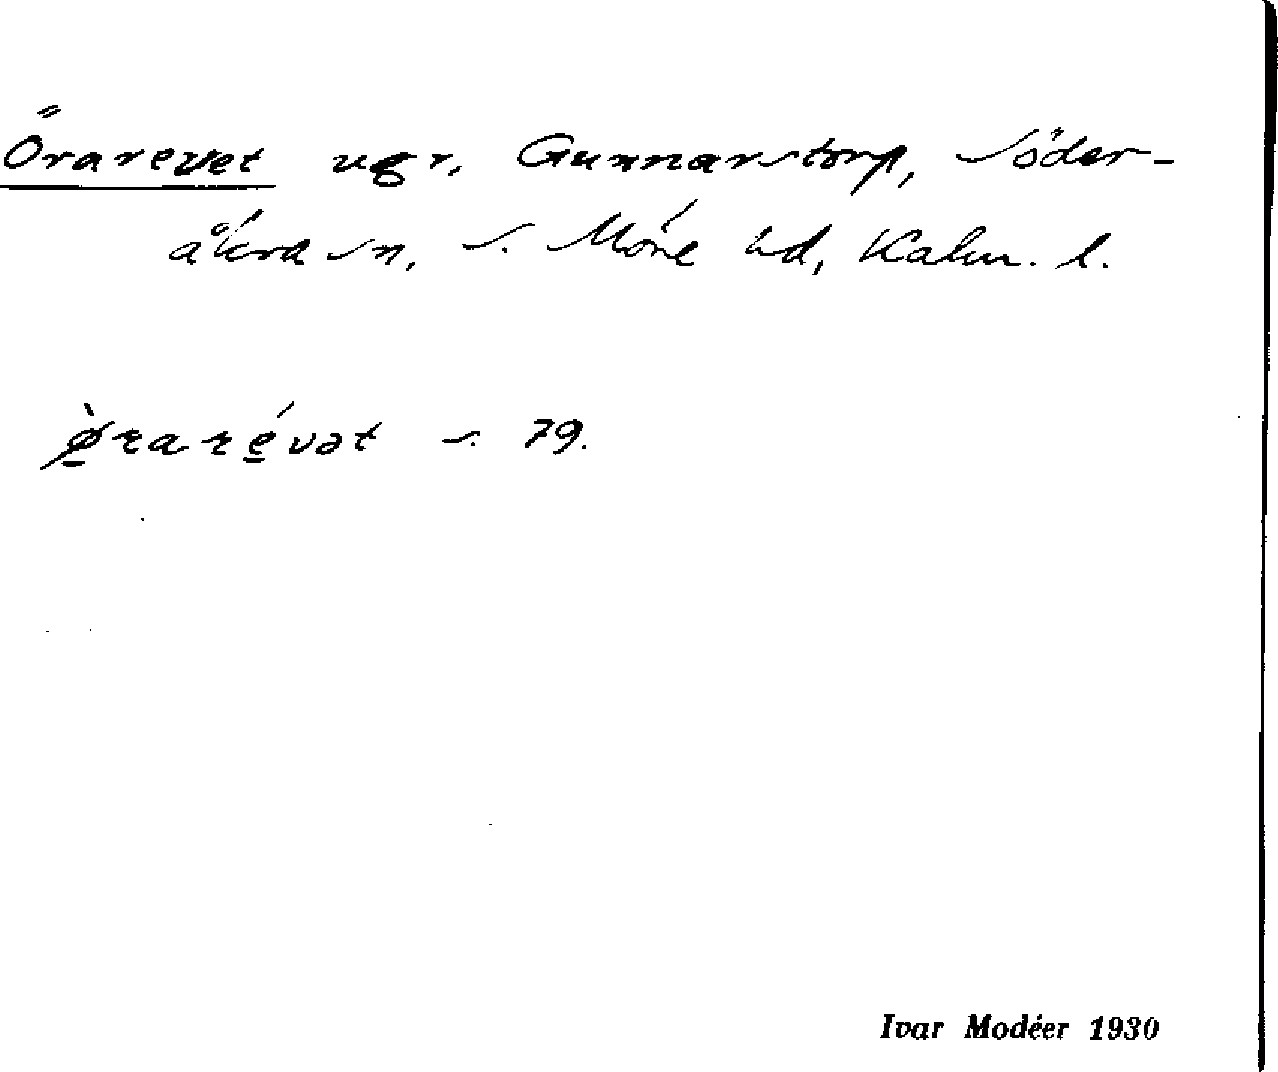 Örarevet ugr, Gunnarstorp, Söder-
åkra sn, S. Möre hd, Kalm. l.
ø̱̀raré̱vət s. 79.
Ivar Modéer 1930